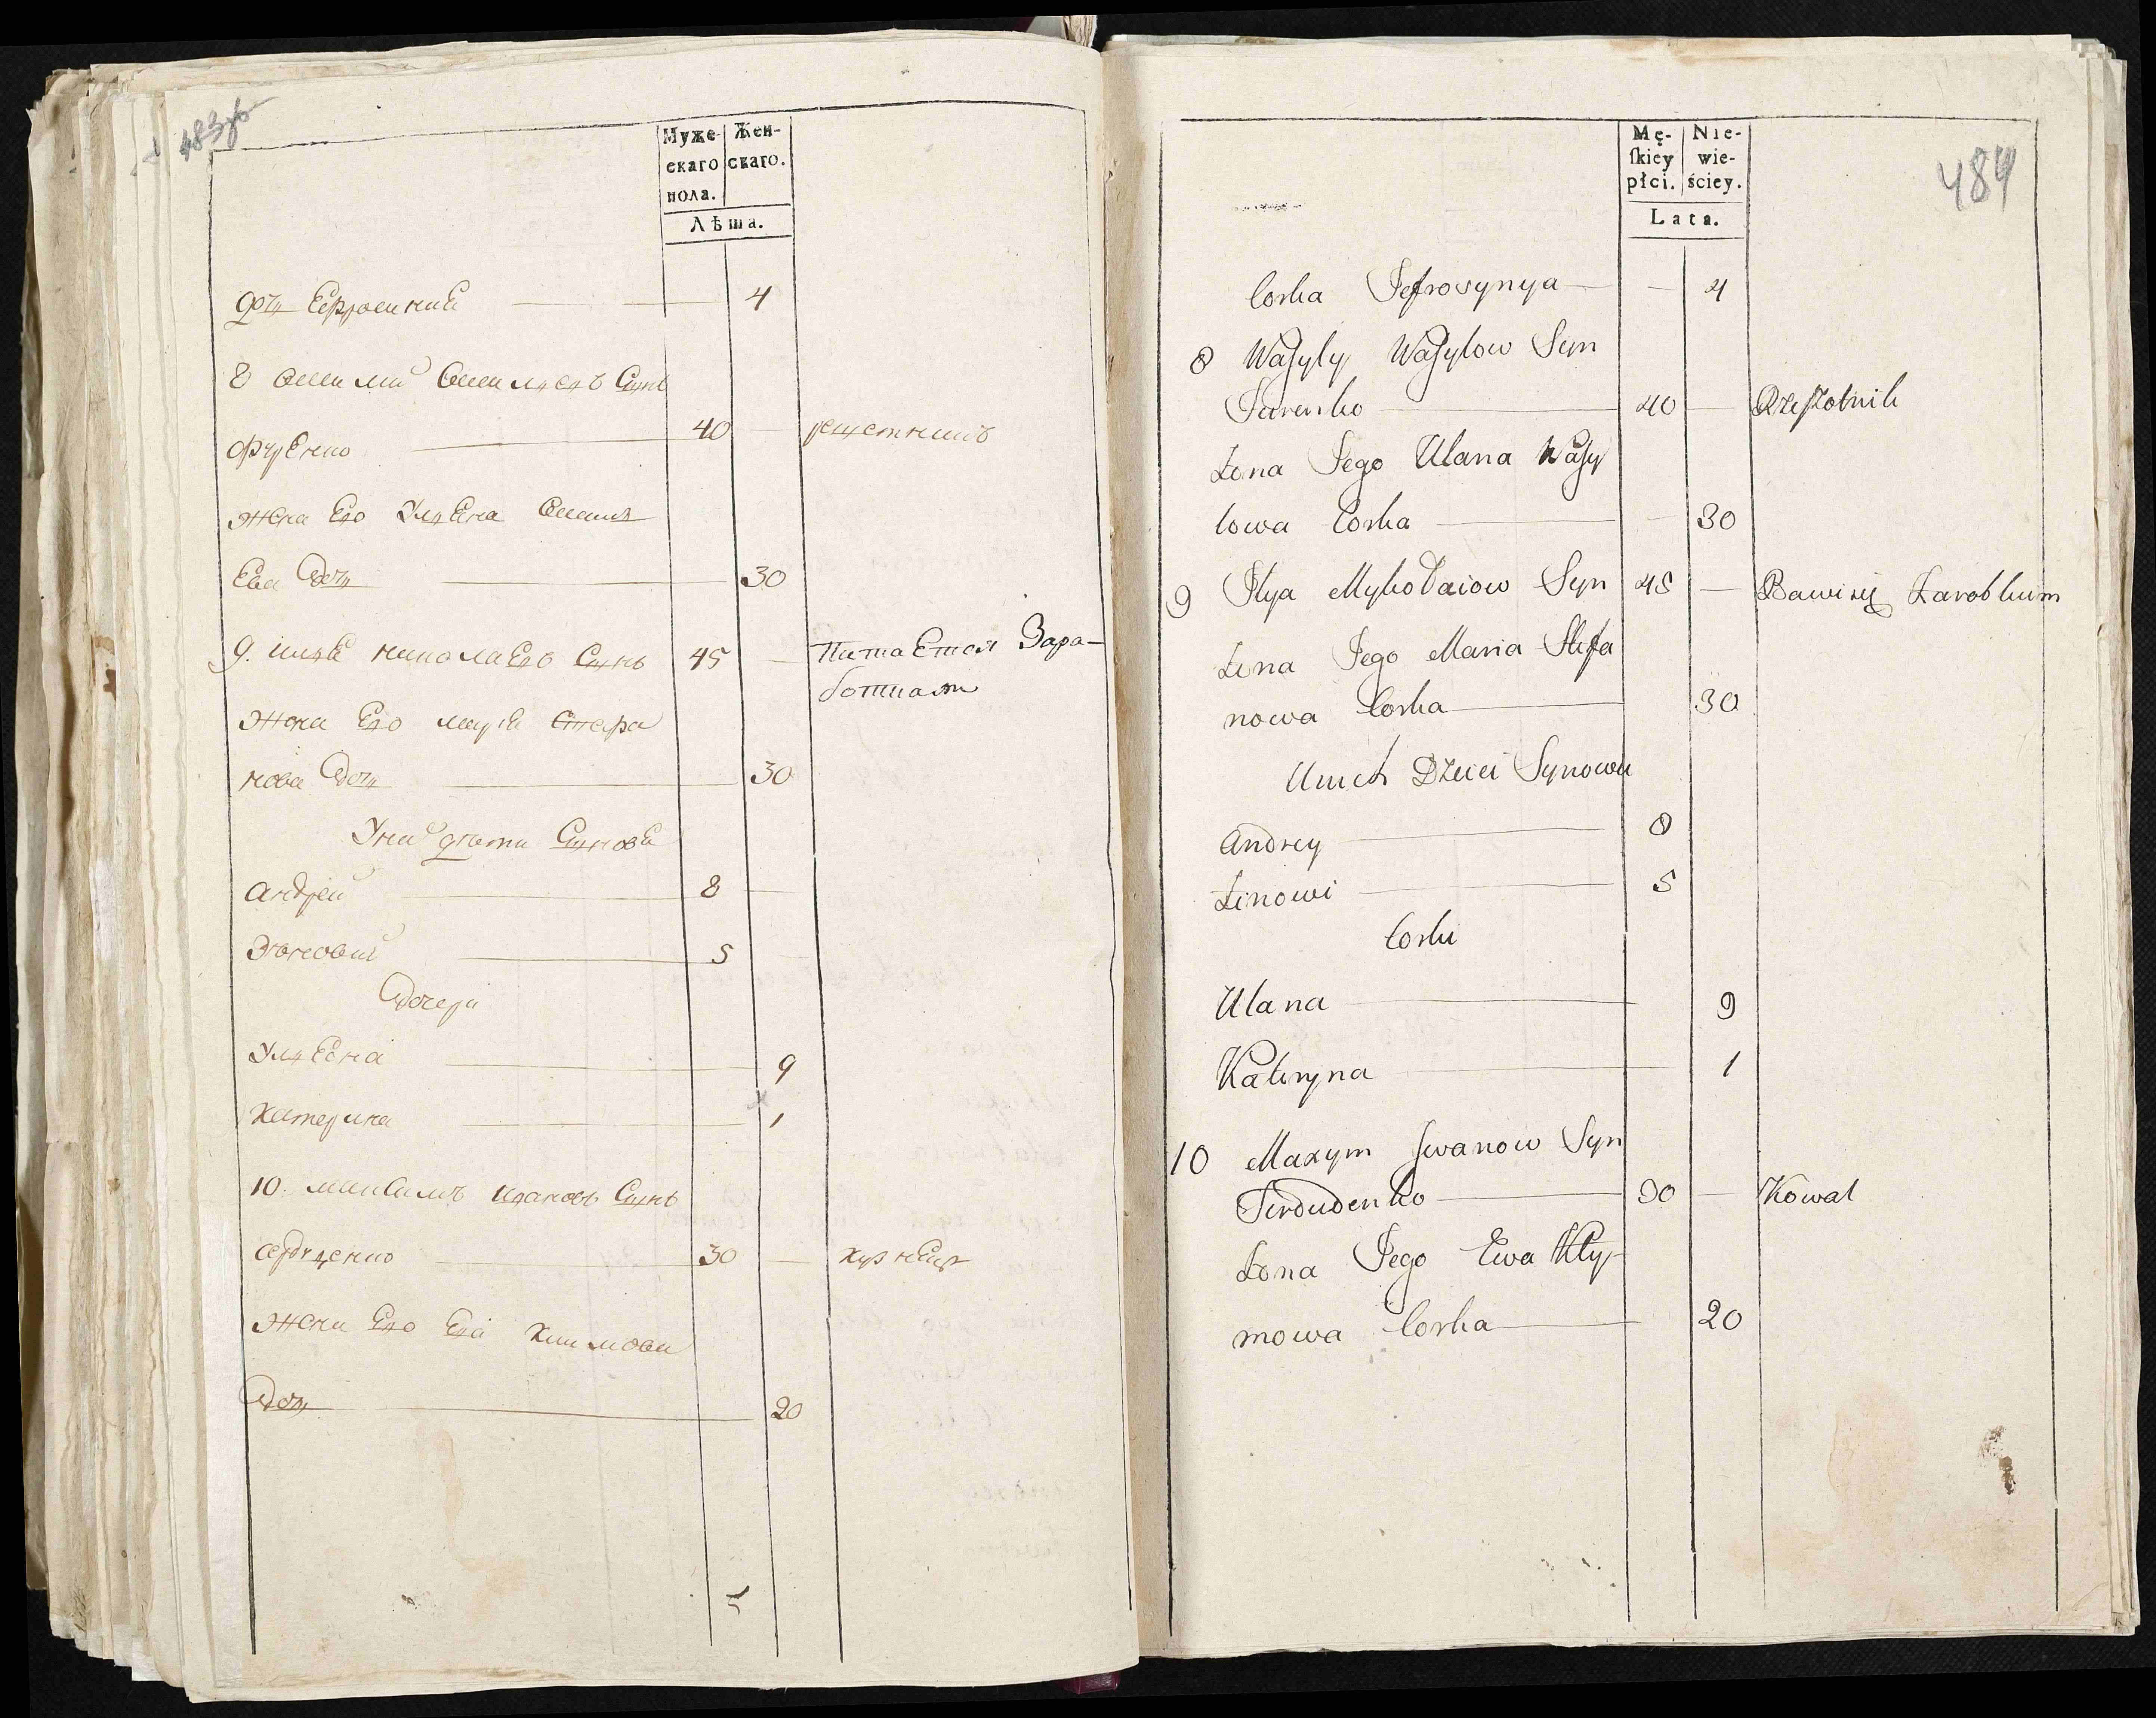 483 зв
Муже-
скаго
пола.
Жен-
скаго.
Лѣта.
дочь Ефросиния 4
8 Василий Васильевъ Сынъ
Фуренко 40 решетникъ
жена Его Ульена Василь
Ева Дочь 30
9. илья николаевъ Сынъ 45 Питается Зара-
боткам
жена Его марья Стефа
нова Дочь 30
У них дети Сыновья
Андрей 8
Зѣновий 5
Дочери
Ульена 9
Катерина 1
10. максимъ ивановъ Сынъ
Сердуденко 30 кузнец
жена Его Ева Климова
Дочь 20
484
Mę-
skiey
płci.
Nie-
wie-
ściey.
Lata.
Corka Jefrosynya 4
8 Wasyly Wasylow Syn
Furenko 40 Rzeszotnik
Żona Jego Ulana Wasy
lowa Corka 30
9 Ilya Mykołaiow Syn 45 Bawi się Zarobkiem
Żona Jego Maria Stefa
nowa Corka 30
U nich Dzieci Synowie
Andrey 8
Zinowi 5
Corki
Ulana 9
Kateryna 1
10 Maxym Iwanow Syn
Serdudenko 30 Kowal
Żona Jego Ewa Kły-
mowa Corka 20